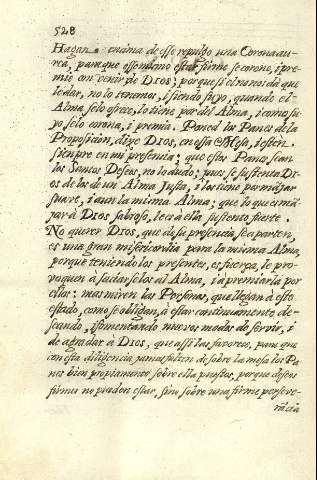 528
Hagan encima de esse repulgo una Corona au-
rea, para que essembano estè firme se corone, i pre-
mie con venir de DIOS; porque si el no nos dà que
le dar, no lo tenemos, i siendo suyo, quando el
Alma se lo ofrece, lo tiene por del Alma, i como su-
yo se lo corona, i premia. Poned los Panes de la
Proposicion, dize DIOS, en essa Mesa, i esten
siempre en mi presencia; que estos Panes sean
los Santos Deseos, no lo dudo; pues se sustenta DI-
OS de los de un Alma Justa, i los tiene por manjar
suave, i aun la misma Alma; que lo que es man-
jar à DIOS sabroso, le es à ella sustento fuerte.
No querer DIOS, que de su presencia se aparten,
es una gran misericordia para la misma Alma,
porque teniendolos presentes, es fuerça, le pro-
voquen à saciarselos al Alma, i à premiarla por
ellos: mas miren las Personas, que llegan à este
estado, como se obligan, à estar continuamente de-
seando, i fomentando nuevos modos de servir, i
de agradar à DIOS, que assi las favorece, para que
con esta diligencia jamas falten de sobre la mesa los Pa-
nes bien propiamente sobre ella puestos, porque deseos
firmes no pueden estar, sino sobre una firme perseve-
rancia